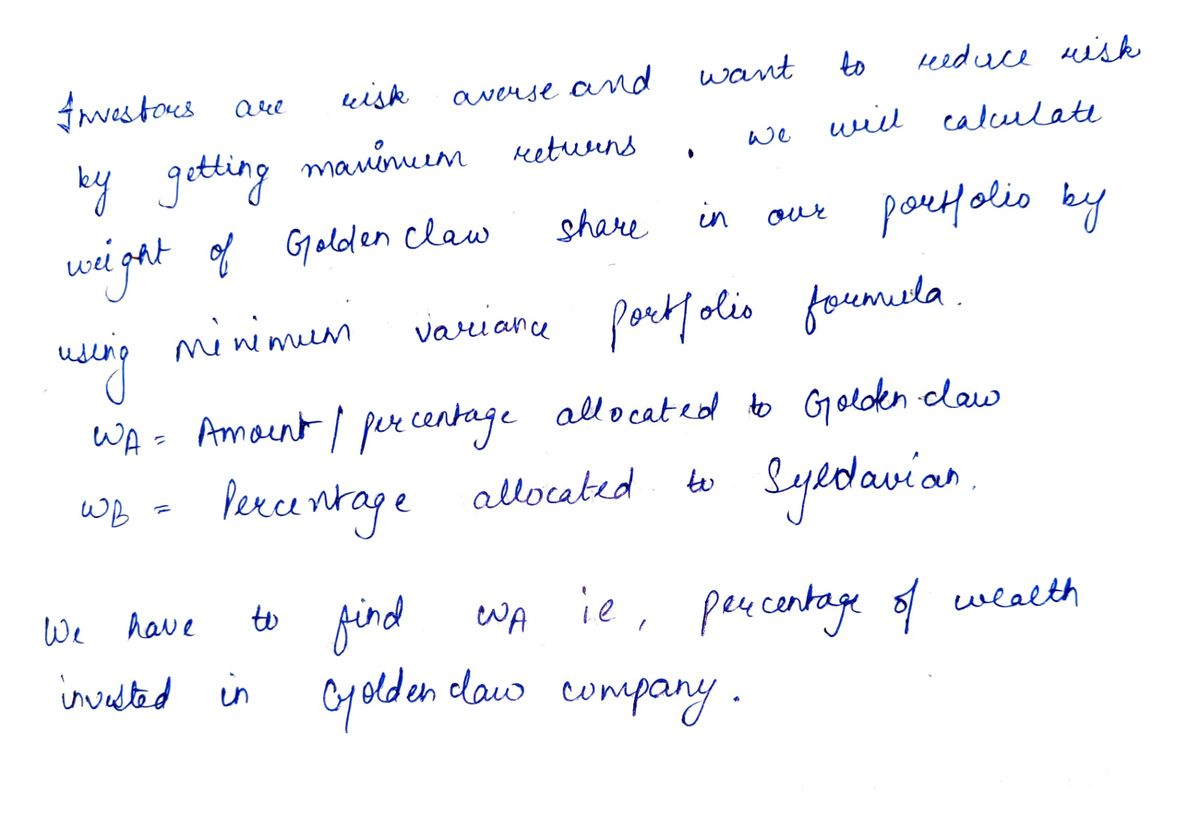 Investors are risk averse and want to reduce risk
by getting maximum returns. We will calculate
weight of Golden claw share in our portfolio by
using minimum variance portfolio formula.
WA = Amount / percentage allocated to Golden claw
WB = Percentage allocated to Syldavian.
We have to find WA ie, percentage of wealth
invested in Golden claw company.